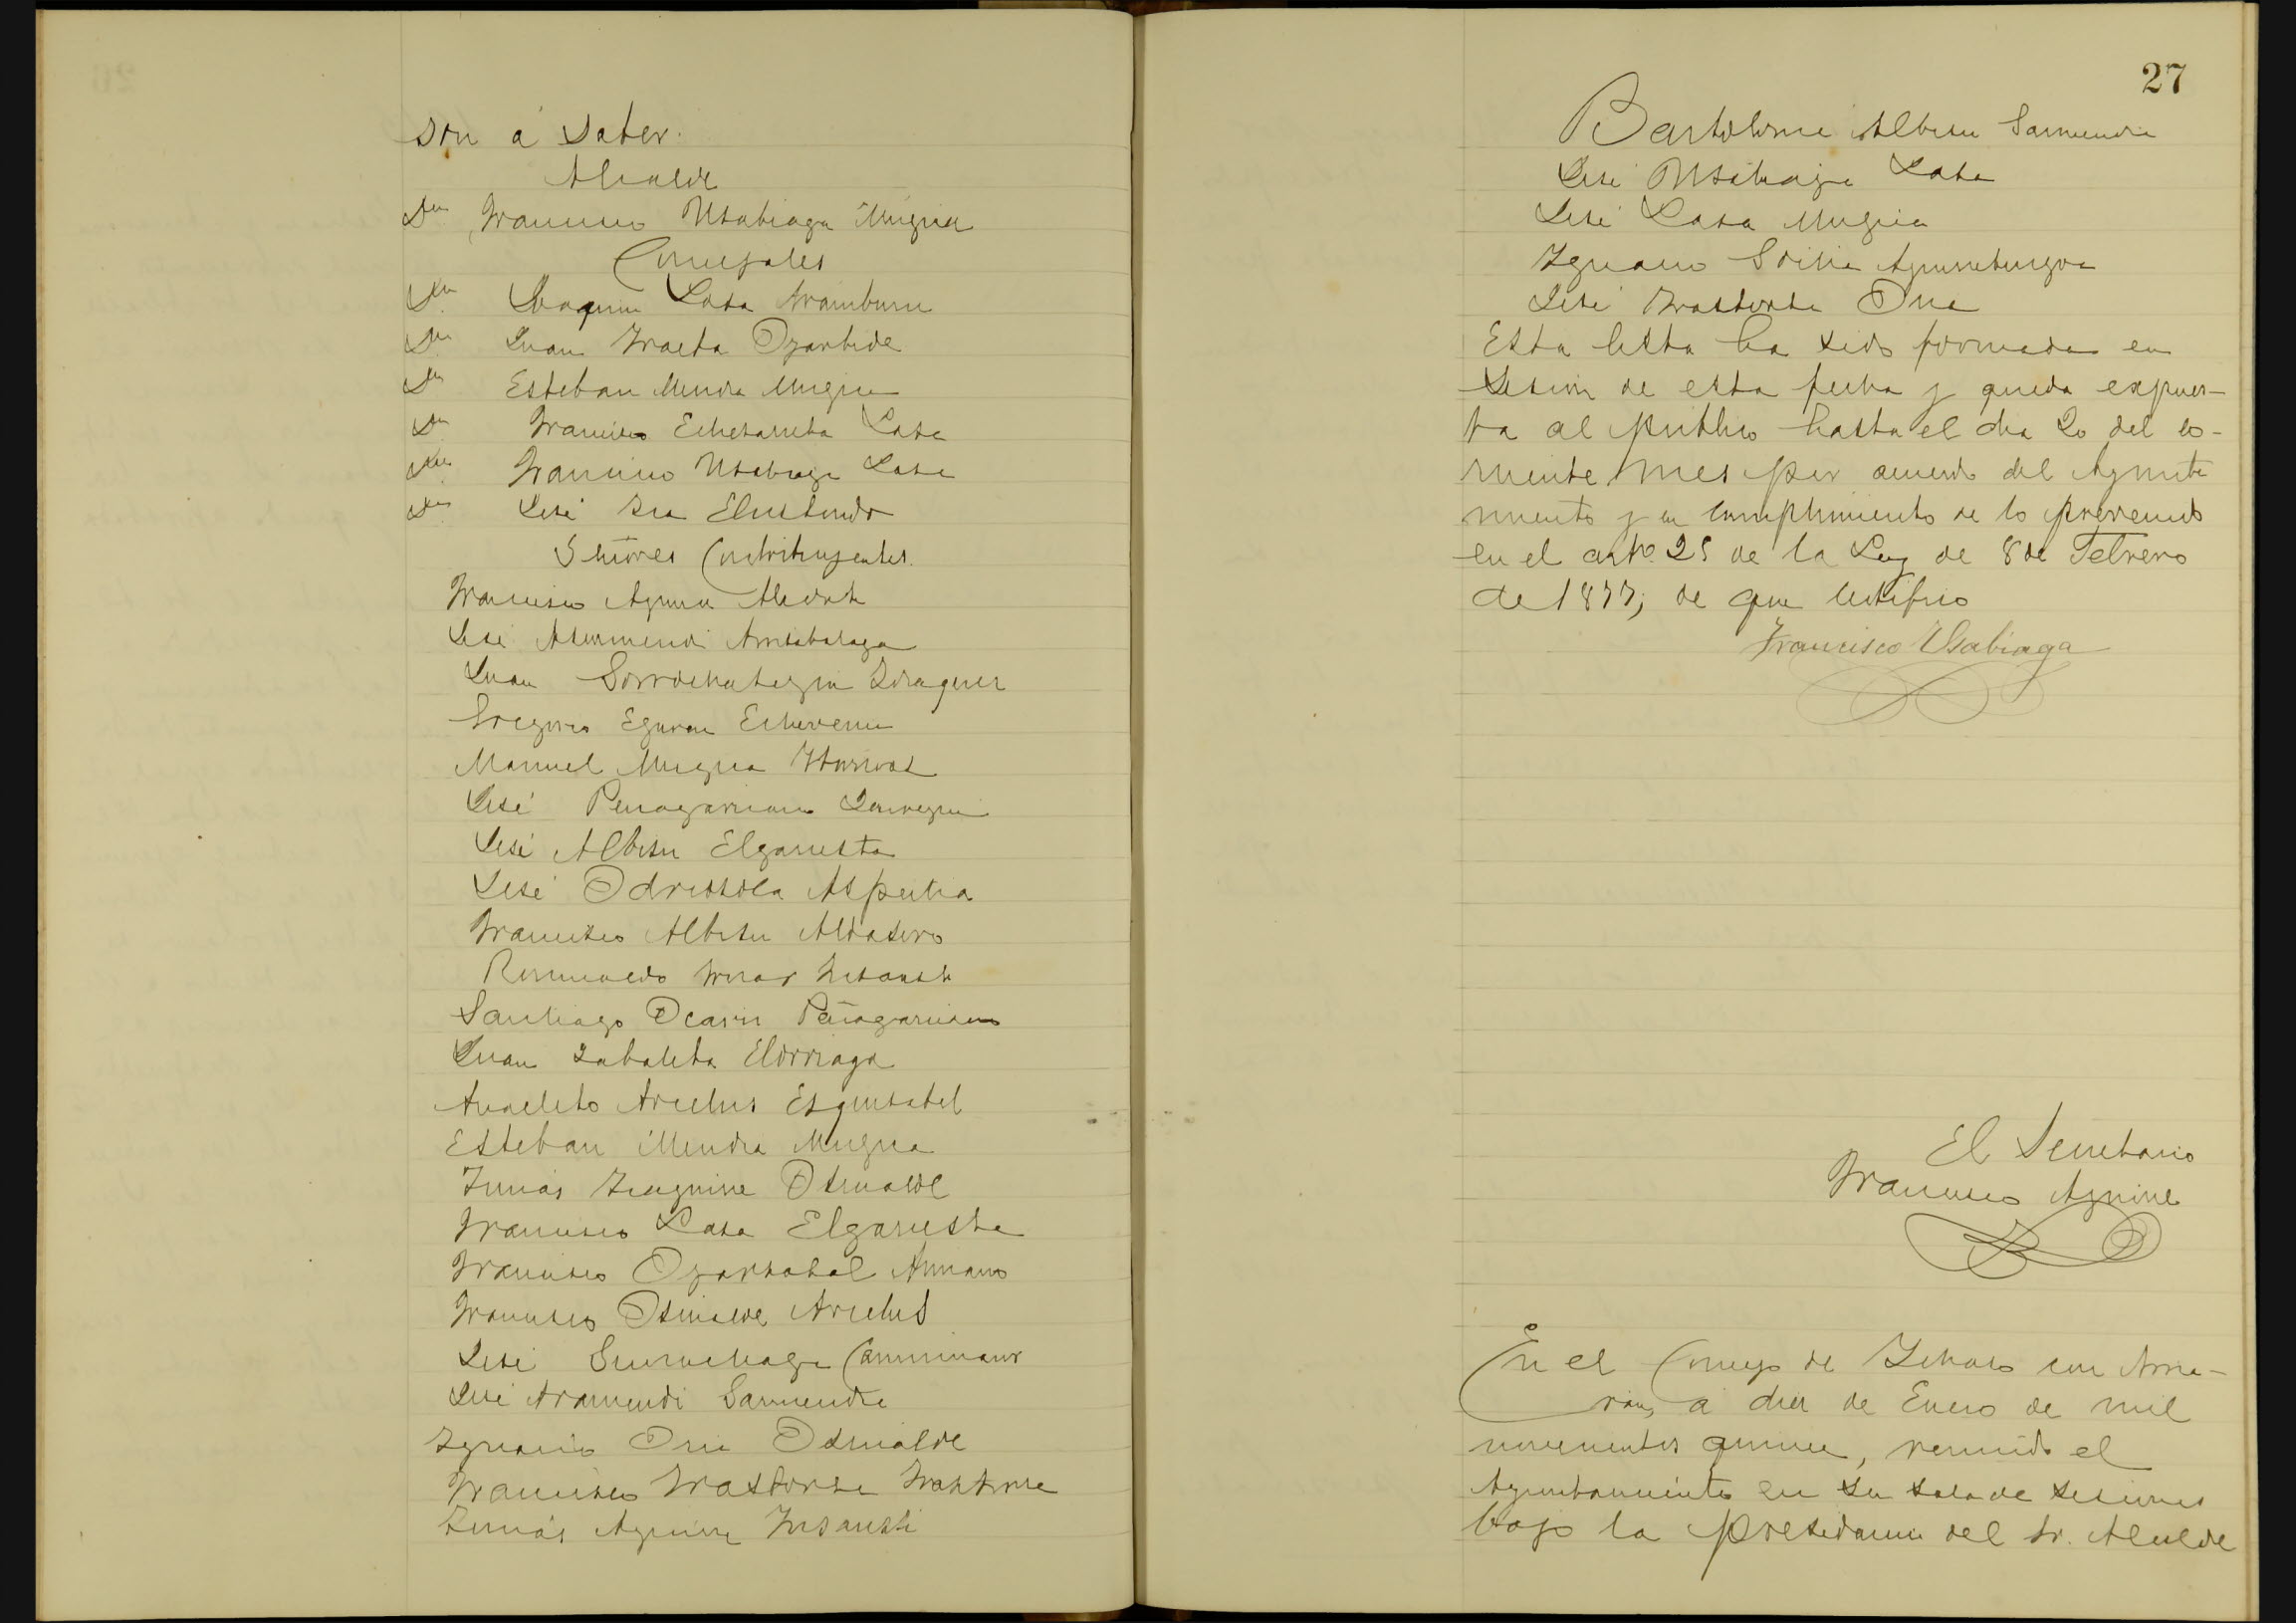 son á saber.
Alcalde
Dn Francisco Usabiaga Mugica
Concejales
Dn Joaquin Lasa Aramburu
Dn Juan Iraeta Oyarbide
Dn Esteban Mendia Mugica
Dn Francisco Echezarreta Lasa
Dn Francisco Usabiaga Lasa
Dn José Elustondo
Señores Contribuyentes.
Francisco Aguirre
José Azurmendi Arrizabalaga
Juan Gorrochategui
Gregorio Eguren Echeverria
Manuel Mugica
José Penagaricano
José Albisu Elgarresta
José Odriozola Aspeitia
Francisco Albisu Aldasoro
Romualdo
Santiago Ocariz Peñagaricano
Juan Zabaleta Elorriaga
Anacleto Arcelus Esquisabel
Esteban Mendia Mugica
Tomás Izaguirre Osinalde
Francisco Lasa Elgarresta
Francisco Oyarzabal
Francisco Osinalde Arcelus
José Gurruchaga
José Aramendi Garmendia
Ignacio Oria Osinalde
Francisco Irastorza Irastorza
Tomás Aguirre Insausti
27
Bartolome Albisu Garmendia
José Usabiaga Lasa
José Lasa Mugica
Ignacio Goitia
José Irastorza Oria
Esta lista ha sido formada en
sesion de esta fecha y queda expues-
ta al publico hasta el dia 20 del co-
rriente mes por acuerdo del Ayunta
miento y en cumplimiento de lo prevenido
en el artº 25 de la Ley de 8 de Febrero
de 1877; de que certifico
Francisco Usabiaga
El Secretario
Francisco Aguirre
En el Concejo de Ichaso con Arria-
ran, á diez de Enero de mil
novecientos quince, reunido el
Ayuntamiento en su sala de sesiones
bajo la presidencia del Sr. Alcalde